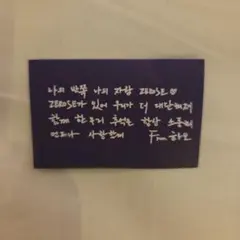 나의 반쪽 나의 자랑 ZEROSE ♡
ZEROSE가 있어 우리가 더 대단해져
함께 한 우리 추억은 항상 소중해
언제나 사랑한다 From 하오